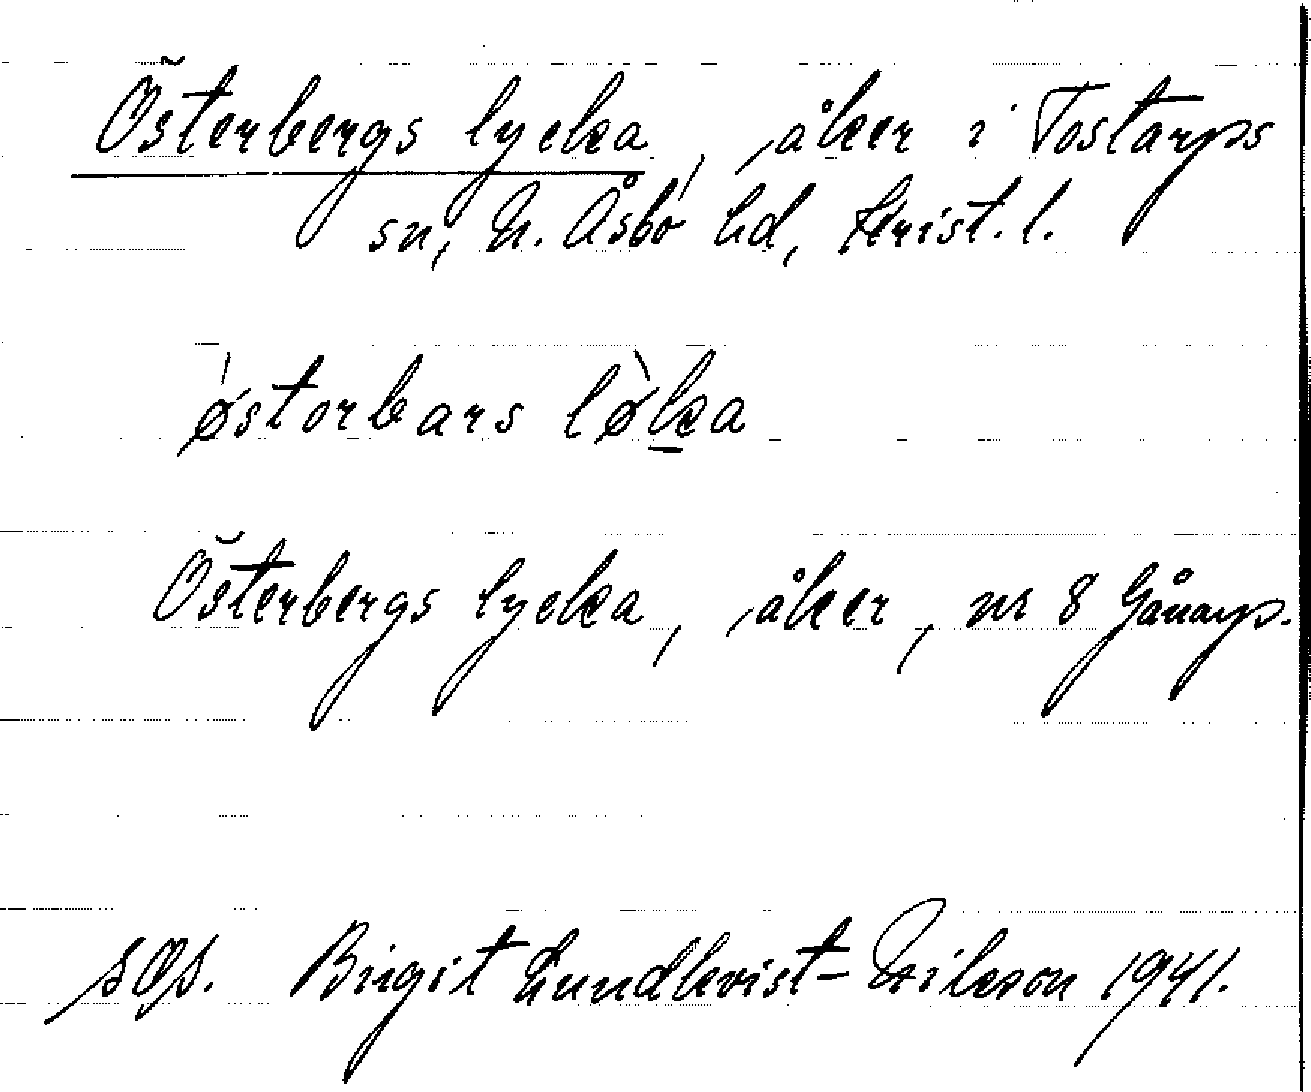 Österbergs lycka, åker i Tostarps
sn, N. Åsbo hd, Krist. l.
ǿstorbars lø̀ka
Österbergs lycka, åker, nr 8 Gånarp.
sÖs. Birgit Lundkvist-Nilsson 1941.